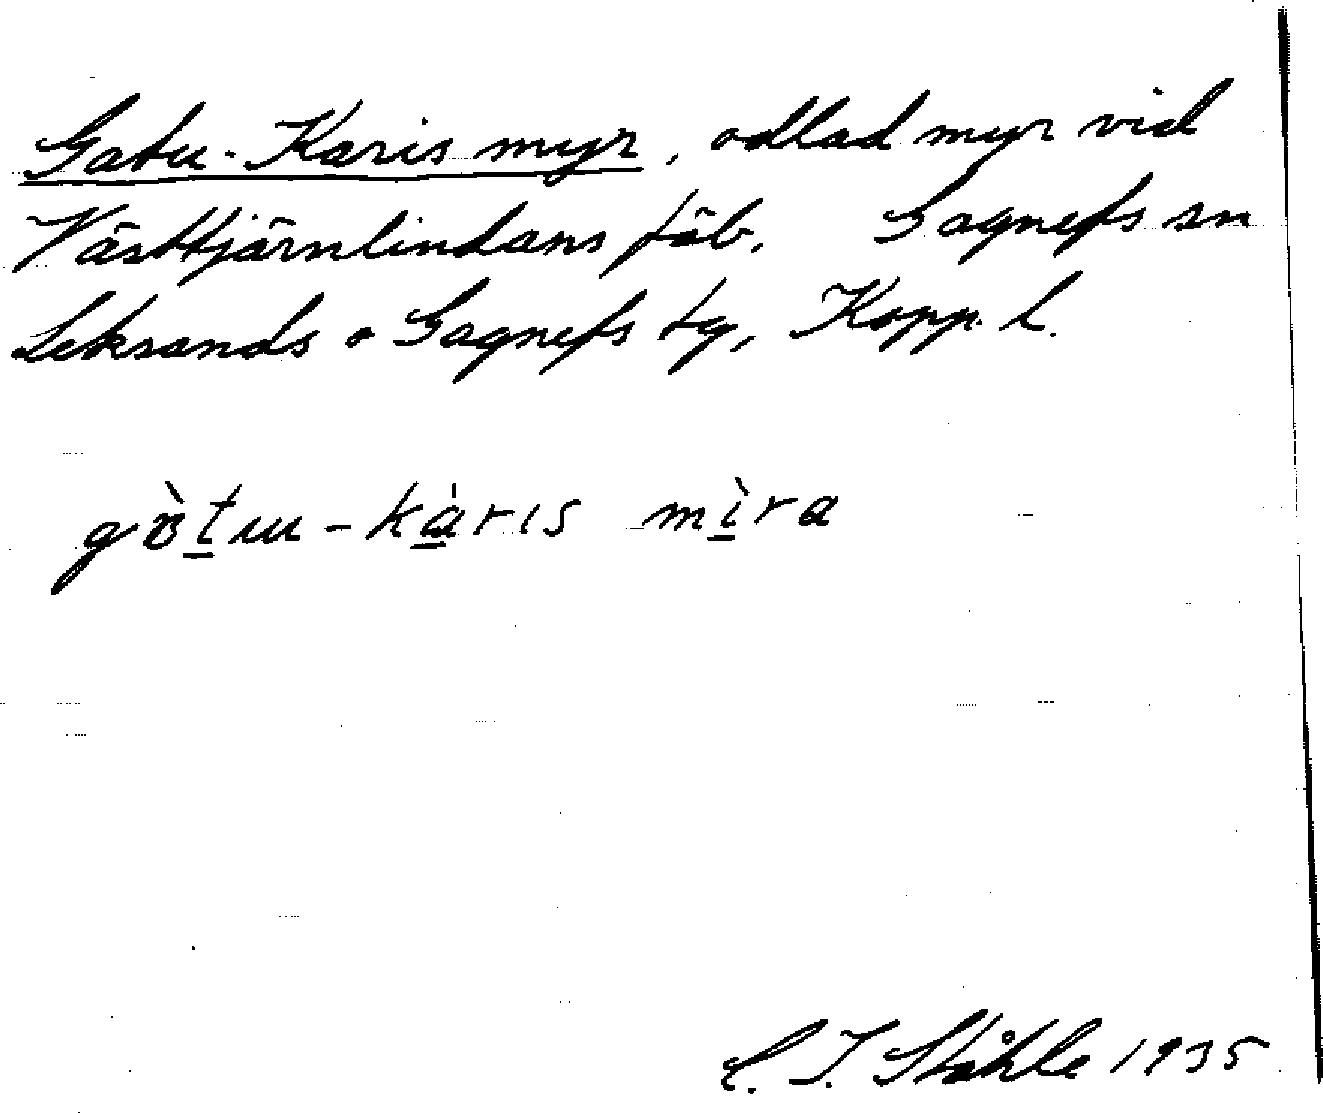 Gatu-Karis myr, odlad myr vid
Västtjärnlindans fäb. Gagnefs sn
Leksands o Gagnefs tg, Kopp. l.
gɒ̀t̲u-kàris mìra
C. I. Ståhle 1935